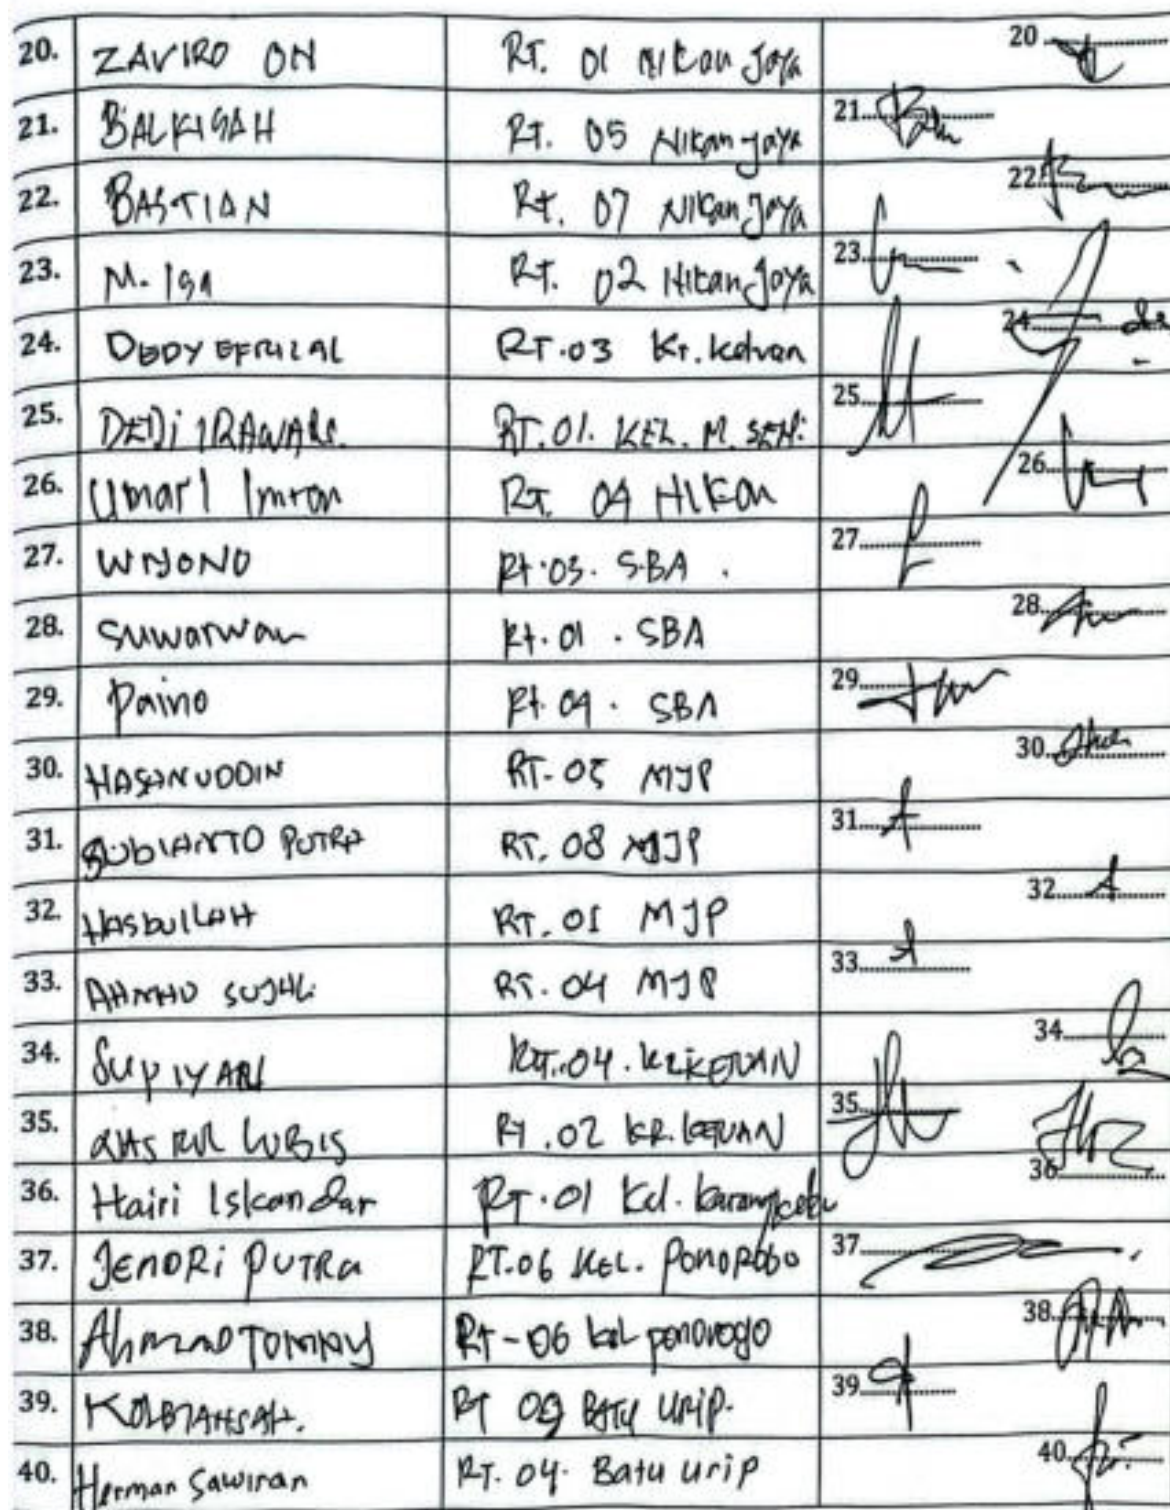 20. ZAVIRO ON RT. 01 Nikan Jaya 20
21. BALKISAH RT. 05 Nikan Jaya 21
22. BASTIAN Rt. 07 Nikan Jaya 22
23. M. Isa RT. 02 Nikan Jaya 23
24. DEDY EFRIZAL RT.03 Kr. Ketuan 24
25. DEDI IRAWAN. RT.01. KEL. M. 25
26. Umar I Imron RT. 04 NIKAN 26
27. WIYONO Rt.03. SBA. 27
28. Suwarwan Rt.01. SBA 28
29. Paino Rt.04. SBA 29
30. HASANUDDIN RT.05 MJP 30
31. SUBIANTO PUTRA RT. 08 MJP 31
32. HASBULLAH RT.01 MJP 32
33. AHMAD RT.04 MJP 33
34. SUPIYAN RT.04. KR.KETUAN 34
35. LUBIS RT.02 KR.KETUAN 35
36. Hairi Iskandar RT.01 Kel. 36
37. JENDRI PUTRA RT.06 KEL. PONOROGO 37
38. Ahmad TOMMY RT-06 kel ponorogo 38
39. RT 09 BATU URIP. 39
40. Herman Sawiran RT. 04. Batu Urip 40